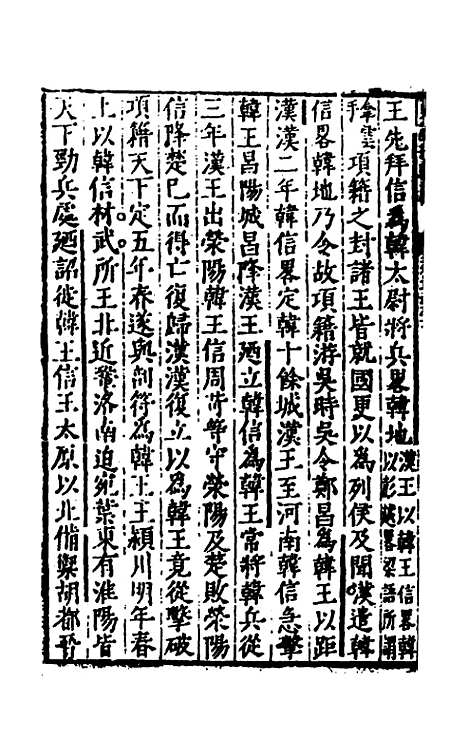 王先拜信為韓太尉將兵畧韓地漢王以韓王信畧韓以彭越畧梁語所謂
拜雲項籍之封諸王皆就國更以為列侯及聞漢遣韓
信畧韓地乃令故項籍游吳時吳令鄭昌為韓王以距
漢漢二年韓信畧定韓十餘城漢王至河南韓信急擊
韓王昌陽城昌降漢王廼立韓信為韓王常將韓兵從
三年漢王出滎陽韓王信周苛等守滎陽及楚敗滎陽
信降楚已而得亡復歸漢漢復立以為韓王竟從擊破
項籍天下定五年春遂與剖符為韓王王潁川明年春
上以韓信材武所王北近鞏洛南迫宛葉東有淮陽皆
天下勁兵處廼詔徙韓王信王太原以北備禦胡都晉